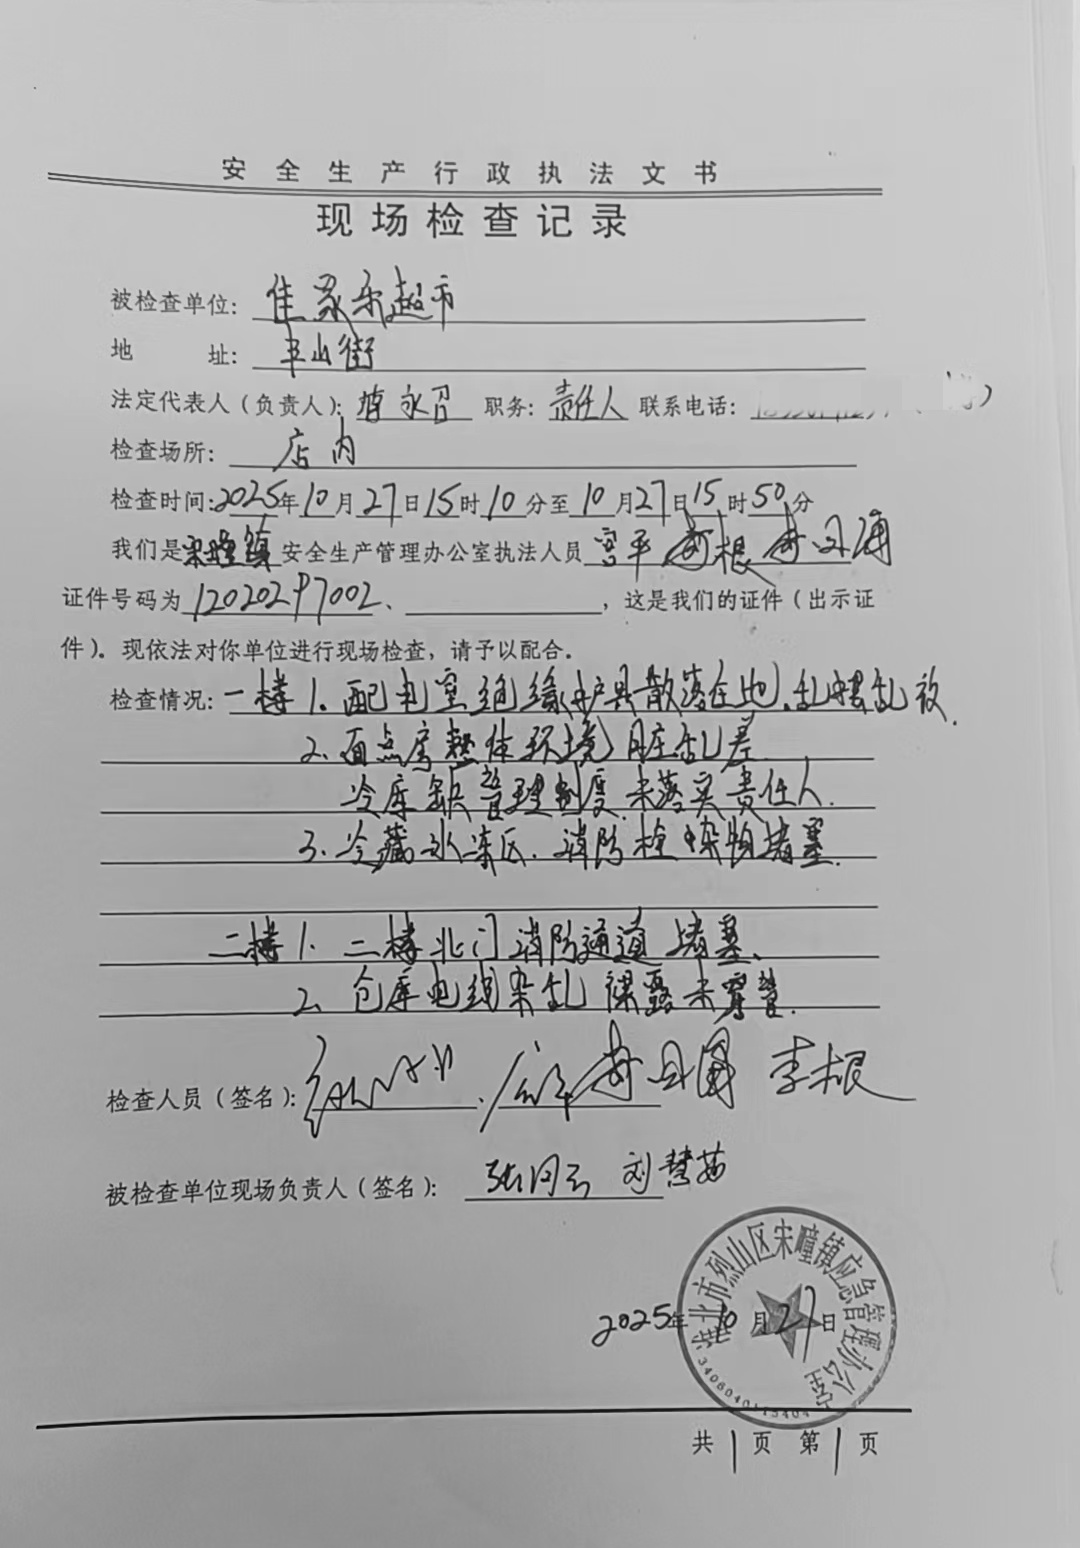 安全生产行政执法文书
现场检查记录
被检查单位：佳家乐超市
地 址：平山街
法定代表人（负责人）： 永召 职务：责任人 联系电话：
检查场所：店内
检查时间：2025年10月27日15时10分至10月27日15时50分
我们是宋疃镇安全生产管理办公室执法人员
证件号码为 、 ，这是我们的证件（出示证
件）。现依法对你单位进行现场检查，请予以配合。
检查情况：一楼1.配电室绝缘护具散落在地.乱摆乱放.
2.面点房整体环境脏乱差
冷库缺管理制度.未落实责任人.
3.冷藏冰冻区.消防栓 堵塞.
二楼1.二楼北门消防通道堵塞、
2.仓库电线杂乱 裸露未穿管.
检查人员（签名）： 李根
被检查单位现场负责人（签名）： 刘慧茹
淮北市烈山区宋疃镇应急管理办公室
2025年10月27日
共1页 第1页